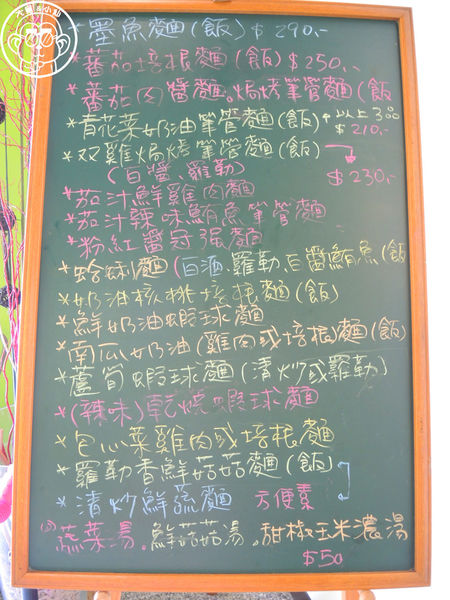 墨魚麵(飯)$290.-
*蕃茄培根麵(飯)$250.-
*蕃茄肉醬麵。焗烤筆管麵(飯
*青花菜奶油筆管麵(飯)以上3品
$210.-
*双雞焗烤筆管麵(飯)
(白醬、羅勒) $230.-
*茄汁鮮雞肉麵
*茄汁辣味鮪魚筆管麵
*粉紅醬冠強麵
*蛤蜊麵(白酒.羅勒.白醬鮪魚(飯
*奶油核桃培根麵(飯)
*鮮奶油蝦球麵
*南瓜奶油(雞肉或培根)麵(飯)
*蘆筍蝦球麵(清炒或羅勒)
*(辣味)乾燒蝦球麵
*包心菜雞肉或培根麵
*羅勒香鮮菇菇麵(飯)
*清炒鮮蔬麵 方便素
蔬菜湯.鮮菇菇湯.甜椒玉米濃湯
$50